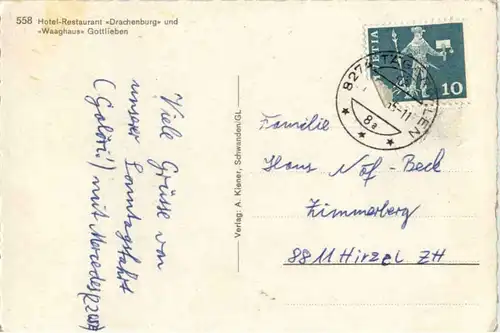 558 Hotel-Restaurant «Drachenburg» und
«Waaghaus» Gottlieben
Viele Grüsse von
unserer Sonntagsfahrt
mit Mercedes
Verlag: A. Kiener, Schwanden/GL
HELVETIA
10
8274
8a
Familie
Hans Näf-Beck
Zimmerberg
8811 Hirzel ZH